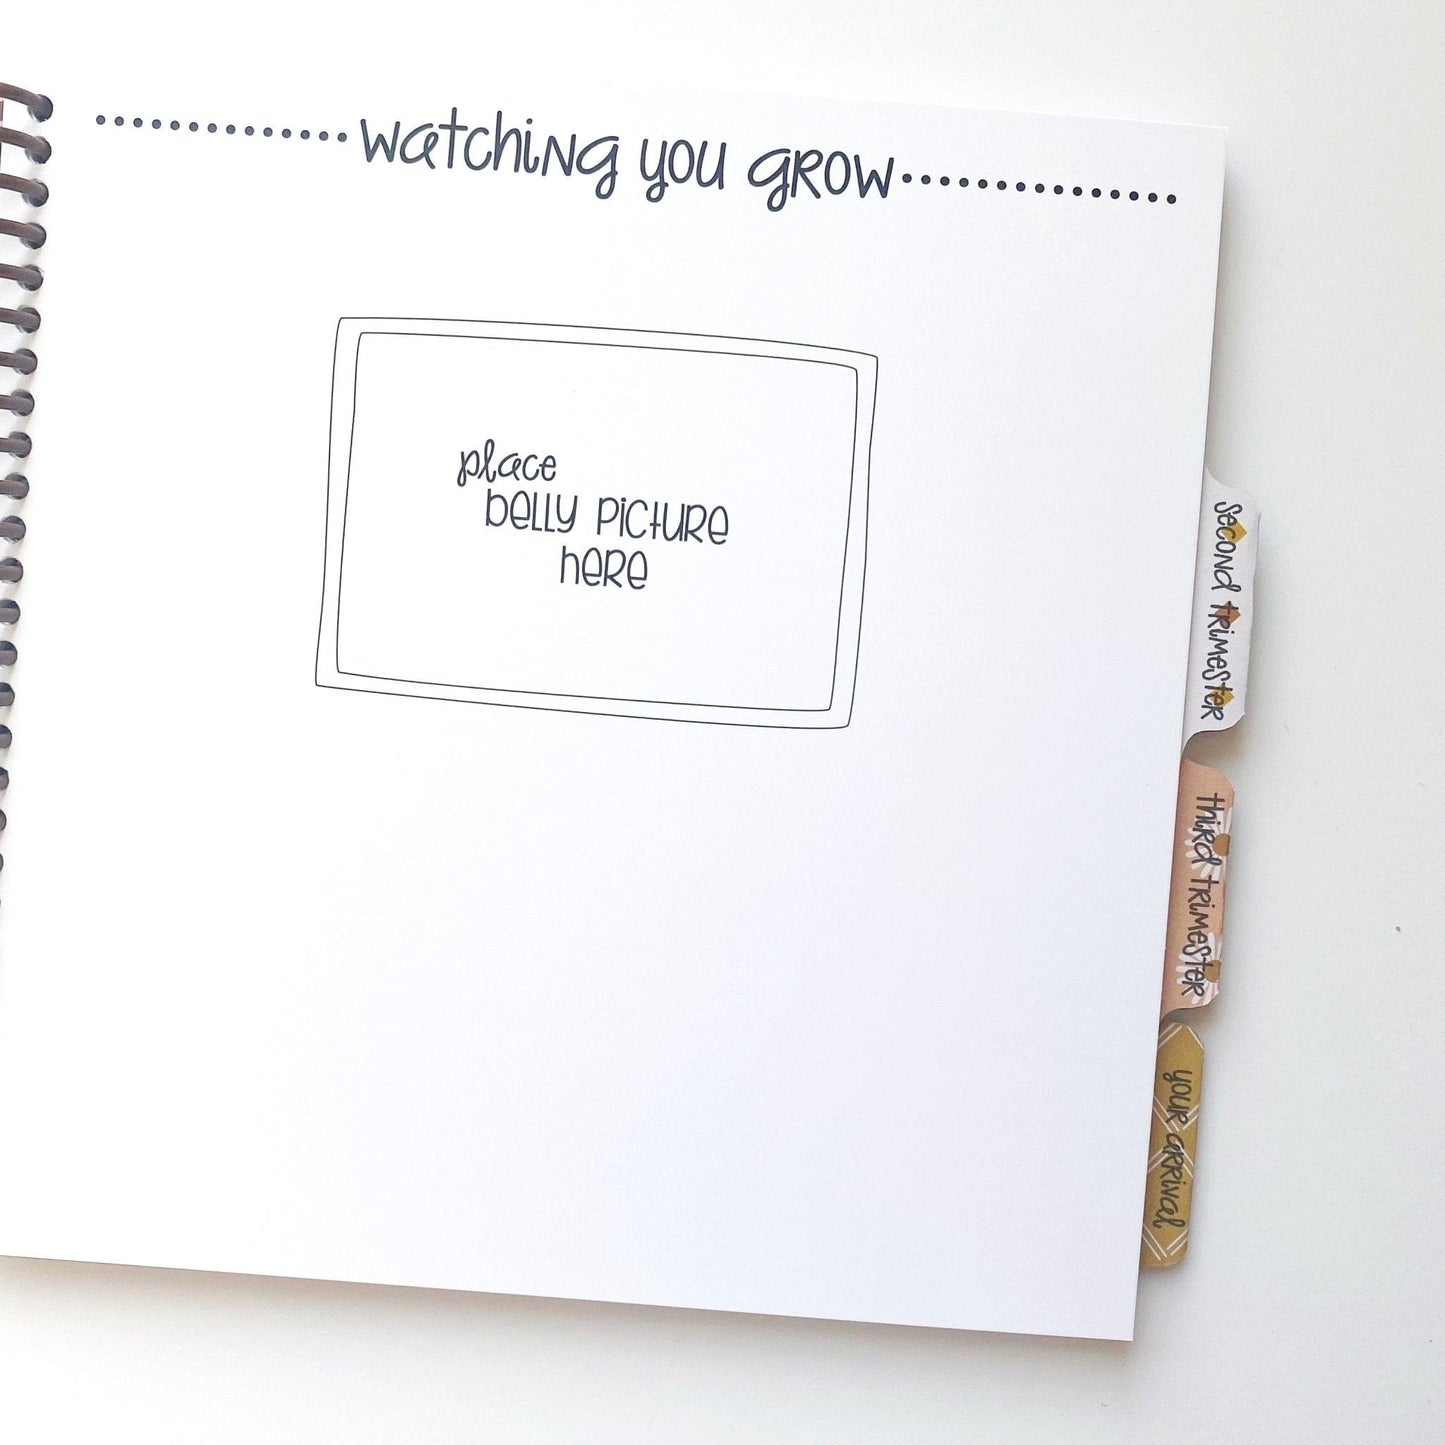 watching you grow
place
belly picture
here
second trimester
third trimester
your arrival